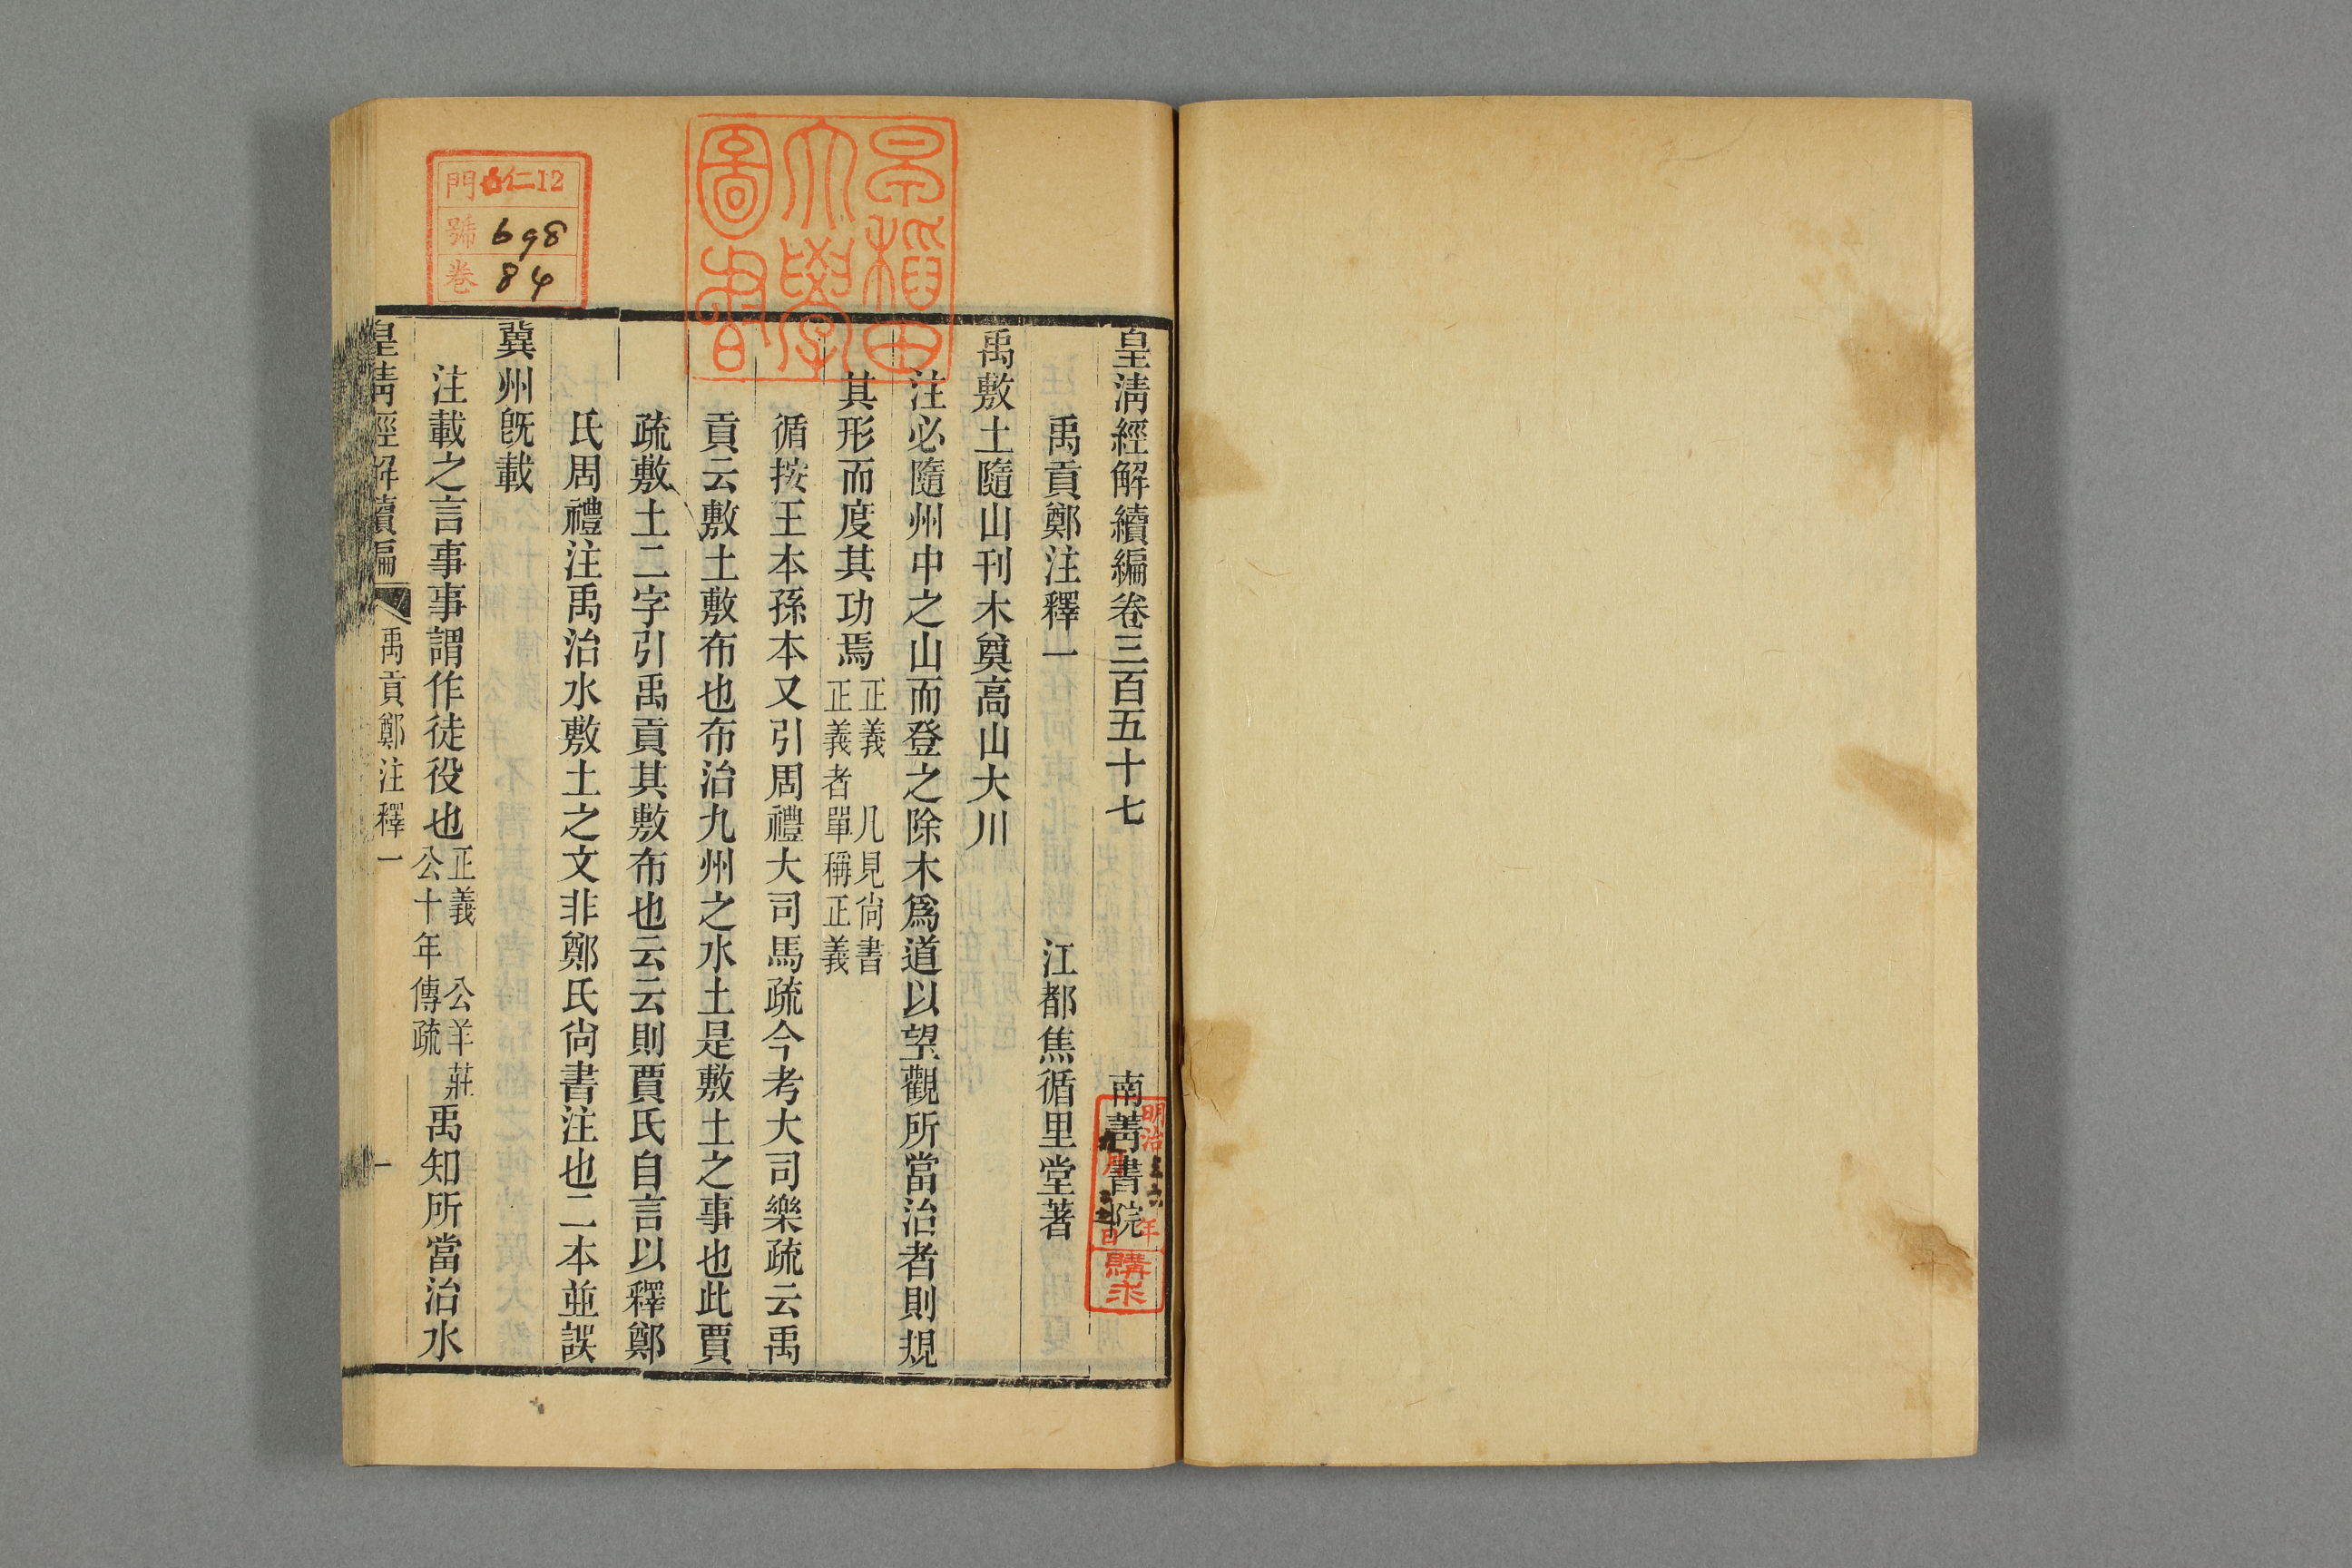 皇清經解續編卷三百五十七　南菁書院
禹貢鄭注釋一　江都焦循里堂著
禹敷土隨山刊木奠高山大川
注必隨州中之山而登之除木爲道以望觀所當治者則規
其形而度其功焉正義　凡見尙書正義者單稱正義
循按王本孫本又引周禮大司馬疏今考大司樂疏云禹
貢云敷土敷布也布治九州之水土是敷土之事也此賈
疏敷土二字引禹貢其敷布也云云則賈氏自言以釋鄭
氏周禮注禹治水敷土之文非鄭氏尙書注也二本並誤
冀州旣載
注載之言事事謂作徒役也正義　公羊莊公十年傳疏禹知所當治水
皇清經解續編　禹貢鄭注釋一　一
早稻田大學圖書
門 仁12
號 698
卷 84
明治三六年
月 日
購求